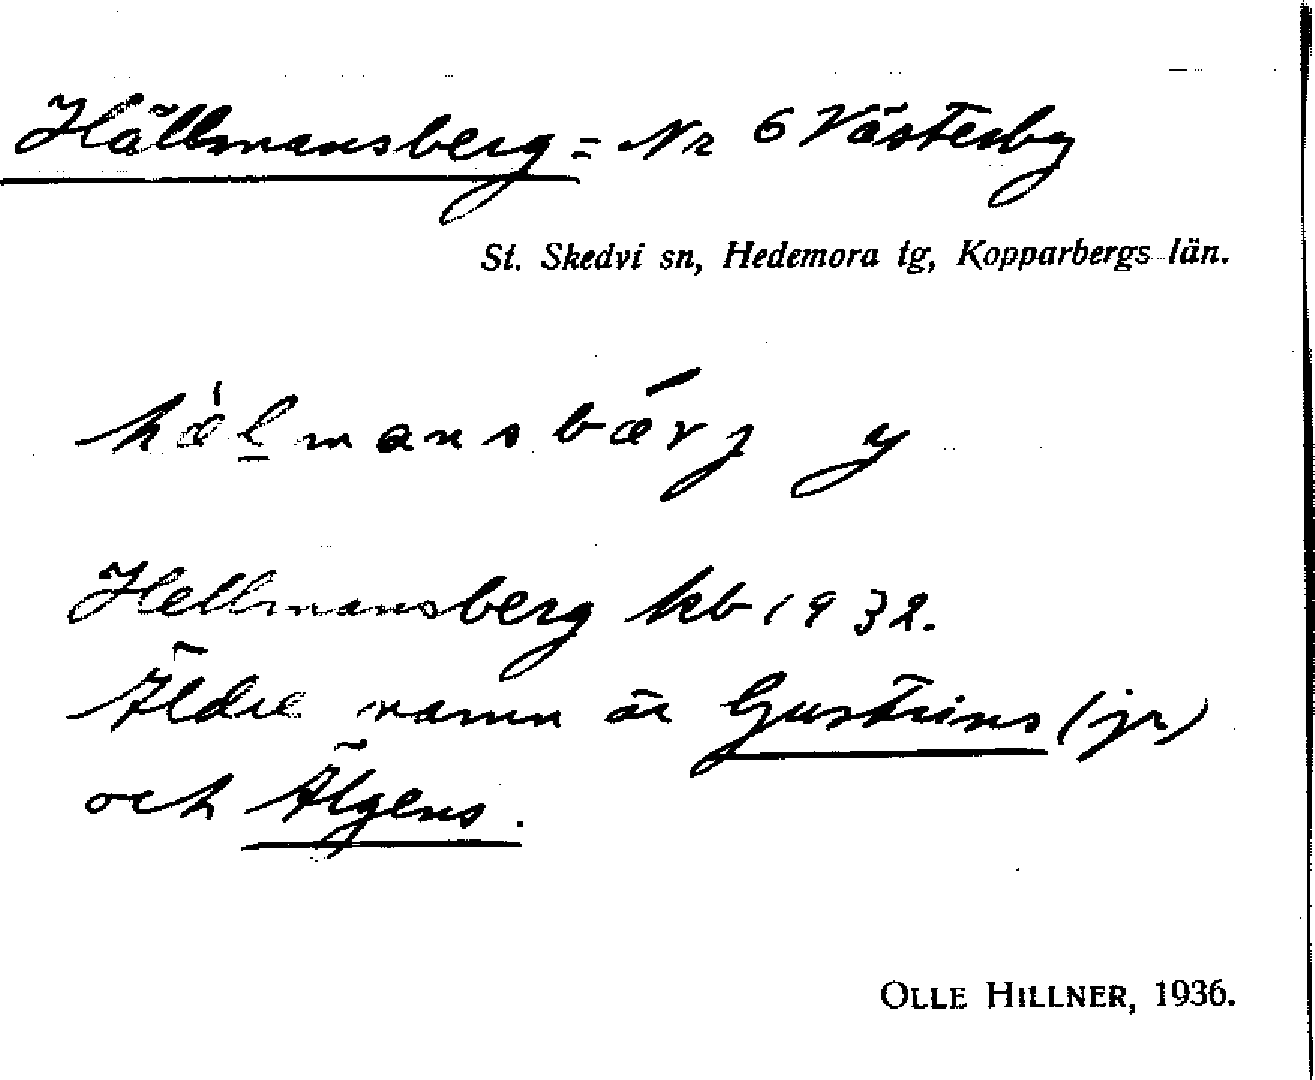 Hällmansberg = Nr 6 Västerby
St. Skedvi sn, Hedemora tg, Kopparbergs län.
hæ̀l̲mansbærj y
Hellmansberg kb 1932.
Äldre namn är Gustrins (jr)
och Älgens.
OLLE HILLNER, 1936.